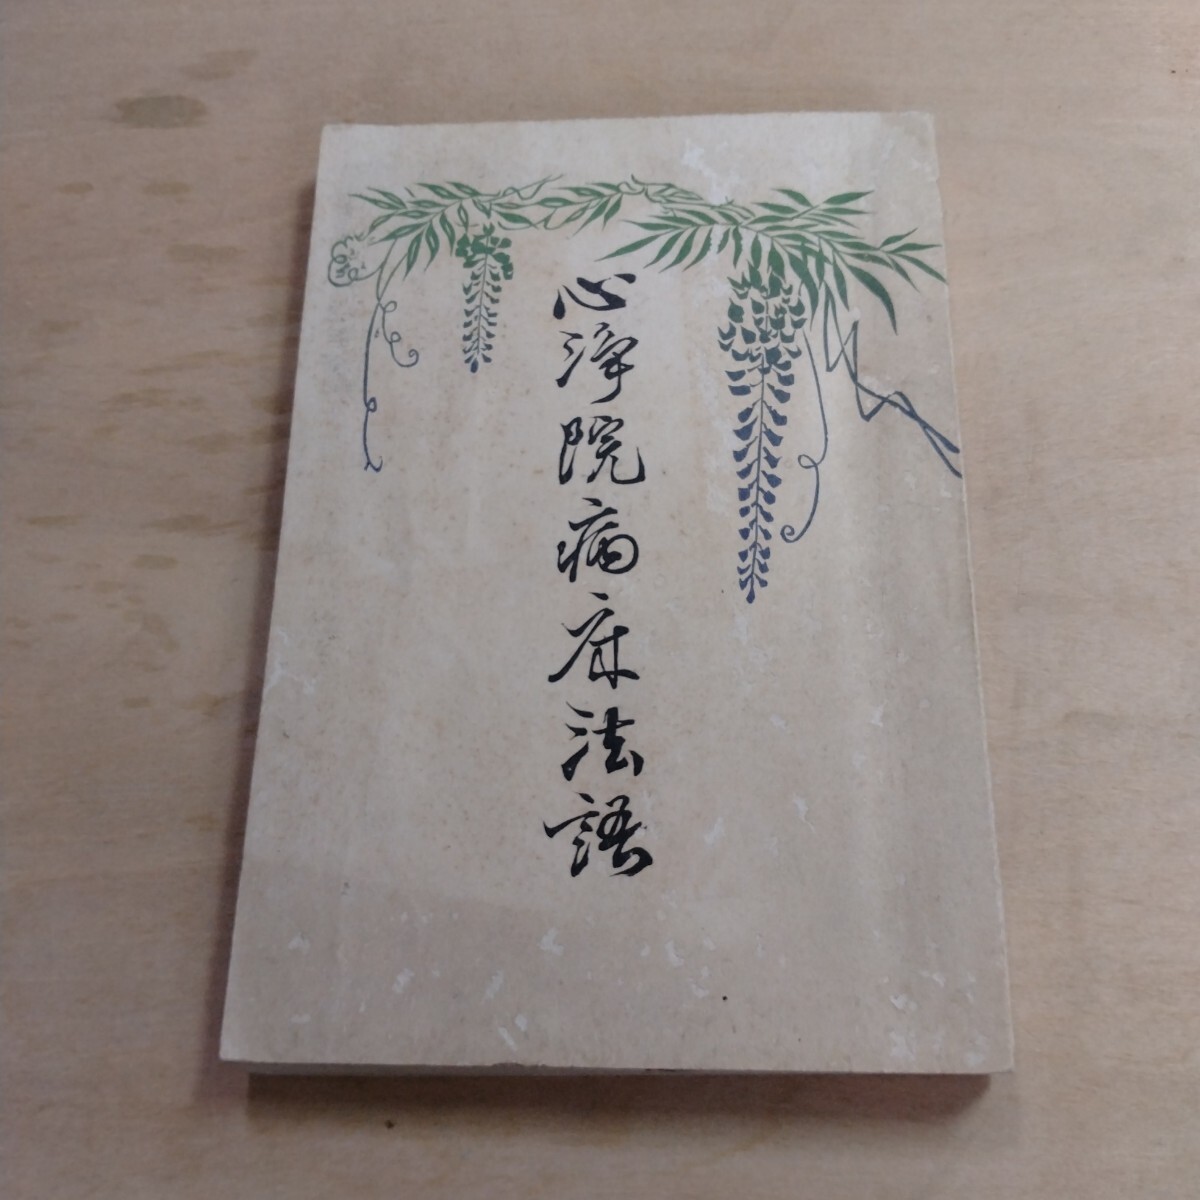 心浄院病床法語